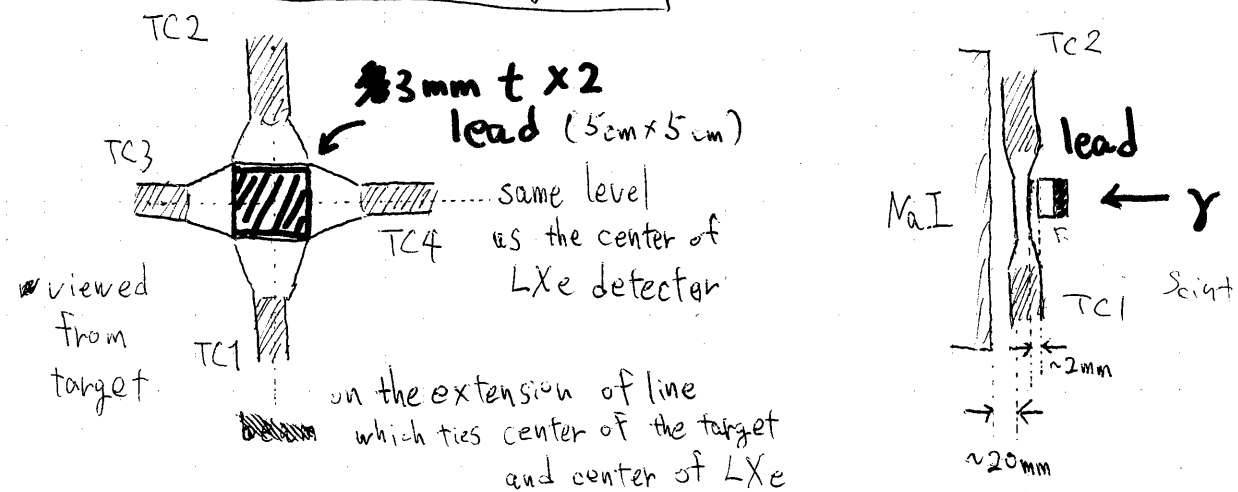 TC2
3mm t x2
lead (5cm x 5cm)
TC3
same level
as the center of
LXe detector
TC4
viewed
from
target
TC1
on the extension of line
which ties center of the target
and center of LXe
TC2
lead
NaI
γ
Scint
TC1
~2mm
~20mm